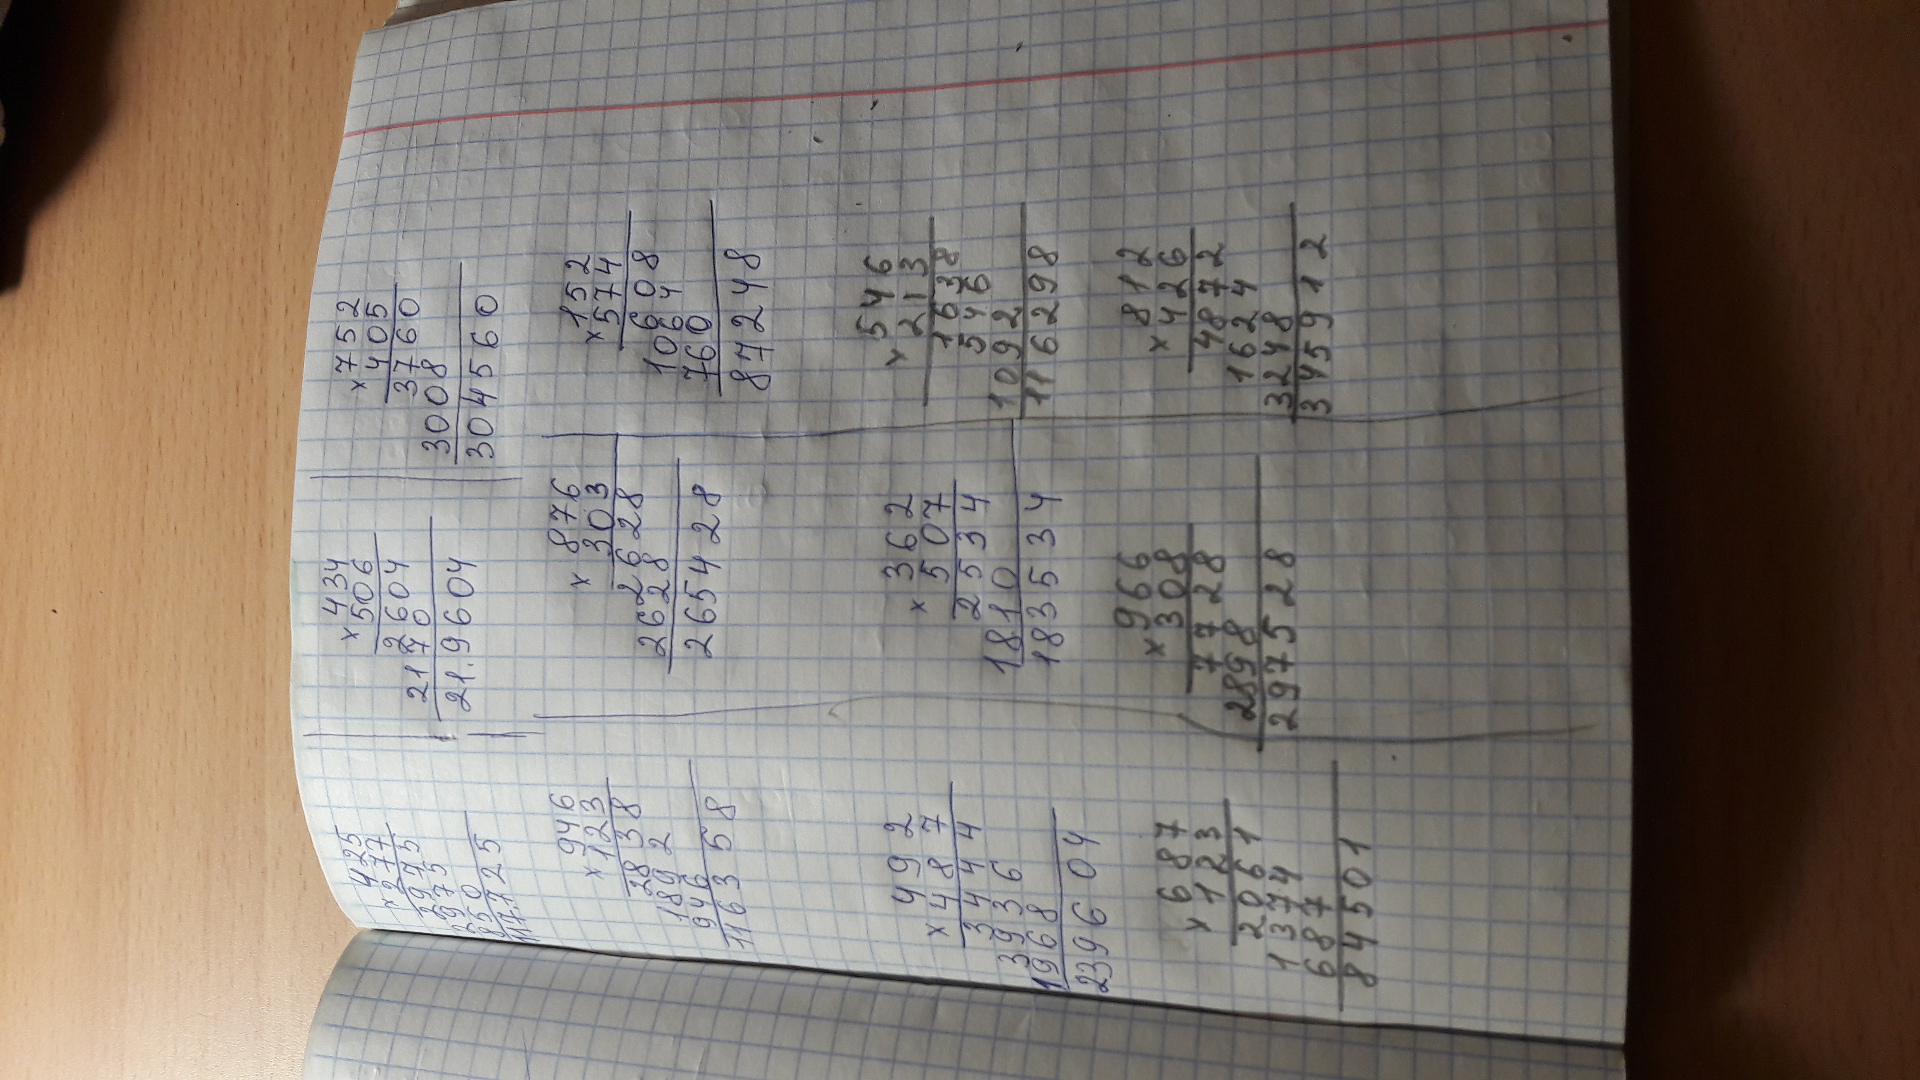 ×425
277
2975
2975
850
117.725
×434
506
2604
2170
21.9604
×752
405
3760
3008
304560
946
×123
2838
1892
946
116358
×876
303
2628
2628
265428
152
×574
608
1064
760
87248
492
×487
3444
3936
1968
239604
×362
507
2534
1810
183534
×546
213
1638
546
1092
116298
687
×123
2061
1374
687
84501
966
×308
7728
2898
297528
812
×426
4872
1624
3248
345912